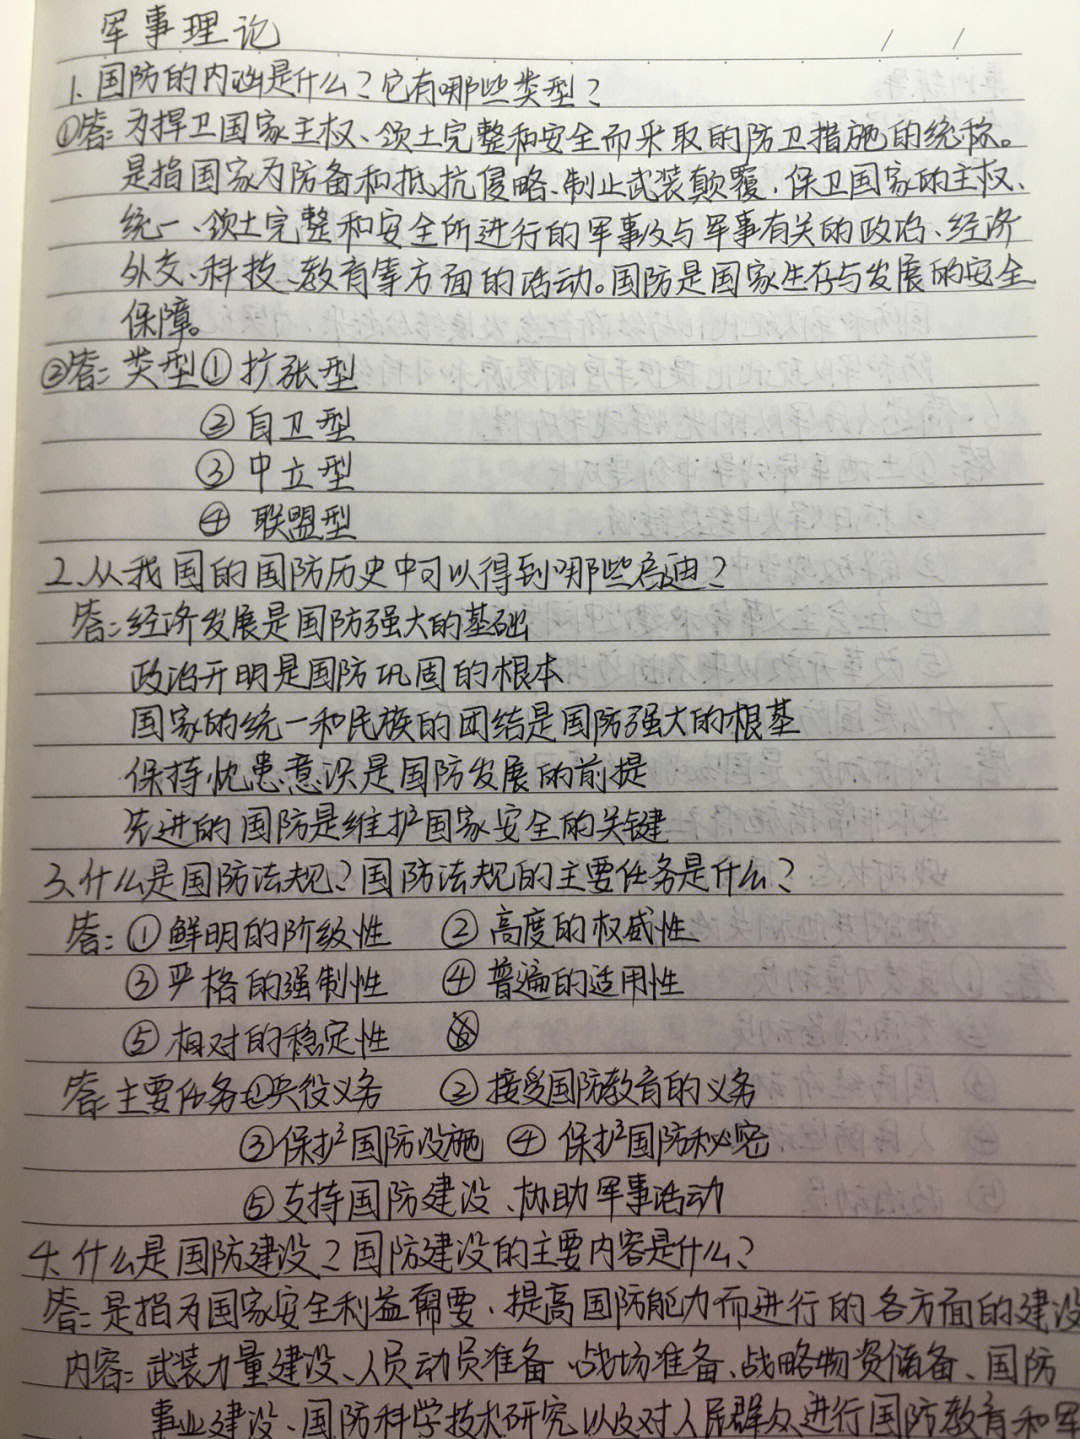 军事理论
1、国防的内涵是什么？它有哪些类型？
①答：为捍卫国家主权、领土完整和安全而采取的防卫措施的统称。
是指国家为防备和抵抗侵略、制止武装颠覆，保卫国家的主权、
统一、领土完整和安全所进行的军事及与军事有关的政治、经济
外交、科技、教育等方面的活动。国防是国家生存与发展的安全
保障。
②答：类型①扩张型
②自卫型
③中立型
④联盟型
2、从我国的国防历史中可以得到哪些启迪？
答：经济发展是国防强大的基础
政治开明是国防巩固的根本
国家的统一和民族的团结是国防强大的根基
保持忧患意识是国防发展的前提
先进的国防是维护国家安全的关键
3、什么是国防法规？国防法规的主要任务是什么？
答：①鲜明的阶级性 ②高度的权威性
③严格的强制性 ④普遍的适用性
⑤相对的稳定性
答：主要任务①兵役义务 ②接受国防教育的义务
③保护国防设施 ④保护国防秘密
⑤支持国防建设、协助军事活动
4、什么是国防建设？国防建设的主要内容是什么？
答：是指为国家安全利益需要，提高国防能力而进行的各方面的建设
内容：武装力量建设、人员动员准备、战场准备、战略物资储备、国防
事业建设、国防科学技术研究以及对人民群众进行国防教育和军